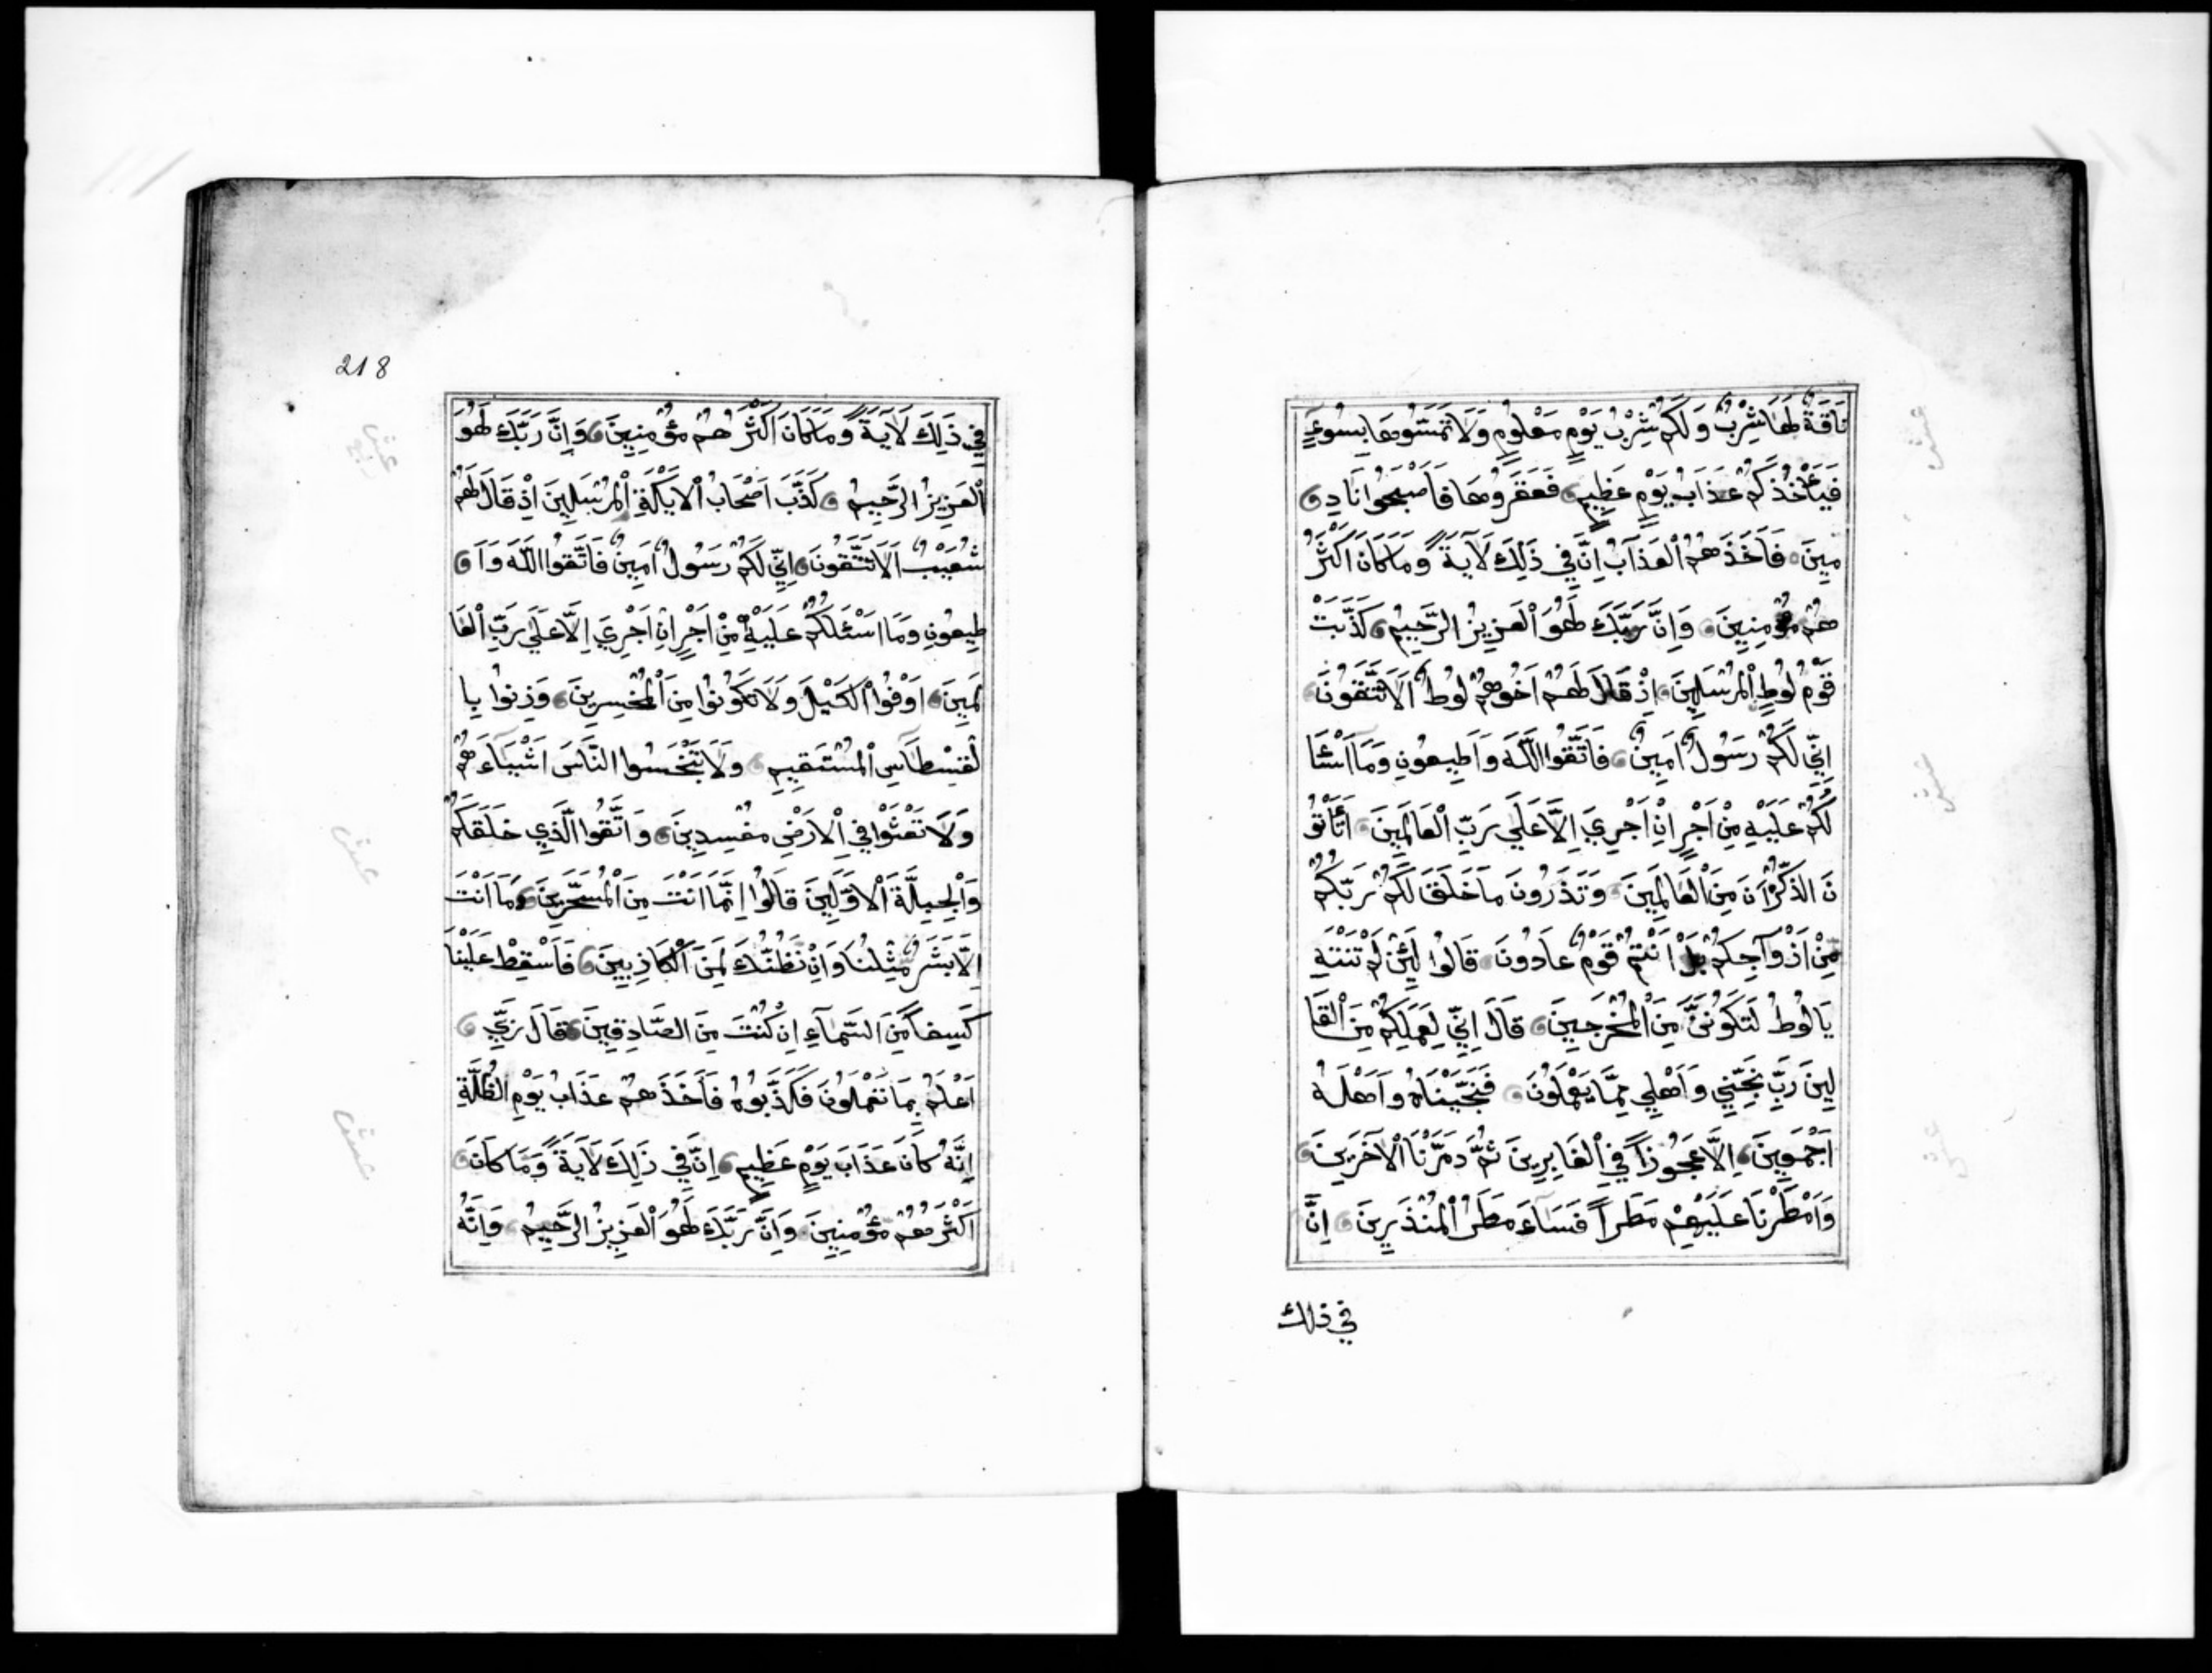 نَاقَةٌ لَهَا شِرْبٌ وَلَكُمْ شِرْبُ يَوْمٍ مَعْلُومٍ وَلَا تَمَسُّوهَا بِسُوءٍ
فَيَأْخُذَكُمْ عَذَابُ يَوْمٍ عَظِيمٍ فَعَقَرُوهَا فَاَصْبَحُوا نَادِ
مِينَ فَاَخَذَهُمُ الْعَذَابُ اِنَّ فِي ذَلِكَ لَآيَةً وَمَا كَانَ اَكْثَرُ
هُمْ مُؤْمِنِينَ وَاِنَّ رَبَّكَ لَهُوَ الْعَزِيزُ الرَّحِيمُ كَذَّبَتْ
قَوْمُ لُوطٍ الْمُرْسَلِينَ اِذْ قَالَ لَهُمْ اَخُوهُمْ لُوطٌ اَلَا تَتَّقُونَ
اِنِّي لَكُمْ رَسُولٌ اَمِينٌ فَاتَّقُوا اللَّهَ وَاَطِيعُونِ وَمَا اَسْئَا
لُكُمْ عَلَيْهِ مِنْ اَجْرٍ اِنْ اَجْرِيَ اِلَّا عَلَى رَبِّ الْعَالَمِينَ اَتَأْتُو
نَ الذُّكْرَانَ مِنَ الْعَالَمِينَ وَتَذَرُونَ مَا خَلَقَ لَكُمْ رَبُّكُمْ
مِنْ اَزْوَاجِكُمْ بَلْ اَنْتُمْ قَوْمٌ عَادُونَ قَالُوا لَئِنْ لَمْ تَنْتَهِ
يَا لُوطُ لَتَكُونَنَّ مِنَ الْمُخْرَجِينَ قَالَ اِنِّي لِعَمَلِكُمْ مِنَ الْقَا
لِينَ رَبِّ نَجِّنِي وَاَهْلِي مِمَّا يَعْمَلُونَ فَنَجَّيْنَاهُ وَاَهْلَهُ
اَجْمَعِينَ اِلَّا عَجُوزًا فِي الْغَابِرِينَ ثُمَّ دَمَّرْنَا الْآخَرِينَ
وَاَمْطَرْنَا عَلَيْهِمْ مَطَرًا فَسَاءَ مَطَرُ الْمُنْذَرِينَ اِنَّ
في ذلك
218
فِي ذَلِكَ لَآيَةً وَمَا كَانَ اَكْثَرُهُمْ مُؤْمِنِينَ وَاِنَّ رَبَّكَ لَهُوَ
الْعَزِيزُ الرَّحِيمُ كَذَّبَ اَصْحَابُ الْاَيْكَةِ الْمُرْسَلِينَ اِذْ قَالَ لَهُمْ
شُعَيْبٌ اَلَا تَتَّقُونَ اِنِّي لَكُمْ رَسُولٌ اَمِينٌ فَاتَّقُوا اللَّهَ وَاَ
طِيعُونِ وَمَا اَسْئَلُكُمْ عَلَيْهِ مِنْ اَجْرٍ اِنْ اَجْرِيَ اِلَّا عَلَى رَبِّ الْعَا
لَمِينَ اَوْفُوا الْكَيْلَ وَلَا تَكُونُوا مِنَ الْمُخْسِرِينَ وَزِنُوا بِا
لْقِسْطَاسِ الْمُسْتَقِيمِ وَلَا تَبْخَسُوا النَّاسَ اَشْيَاءَهُمْ
وَلَا تَعْثَوْا فِي الْاَرْضِ مُفْسِدِينَ وَاتَّقُوا الَّذِي خَلَقَكُمْ
وَالْجِبِلَّةَ الْاَوَّلِينَ قَالُوا اِنَّمَا اَنْتَ مِنَ الْمُسَحَّرِينَ وَمَا اَنْتَ
اِلَّا بَشَرٌ مِثْلُنَا وَاِنْ نَظُنُّكَ لَمِنَ الْكَاذِبِينَ فَاَسْقِطْ عَلَيْنَا
كِسَفًا مِنَ السَّمَاءِ اِنْ كُنْتَ مِنَ الصَّادِقِينَ قَالَ رَبِّي
اَعْلَمُ بِمَا تَعْمَلُونَ فَكَذَّبُوهُ فَاَخَذَهُمْ عَذَابُ يَوْمِ الظُّلَّةِ
اِنَّهُ كَانَ عَذَابَ يَوْمٍ عَظِيمٍ اِنَّ فِي ذَلِكَ لَآيَةً وَمَا كَانَ
اَكْثَرُهُمْ مُؤْمِنِينَ وَاِنَّ رَبَّكَ لَهُوَ الْعَزِيزُ الرَّحِيمُ وَاِنَّهُ